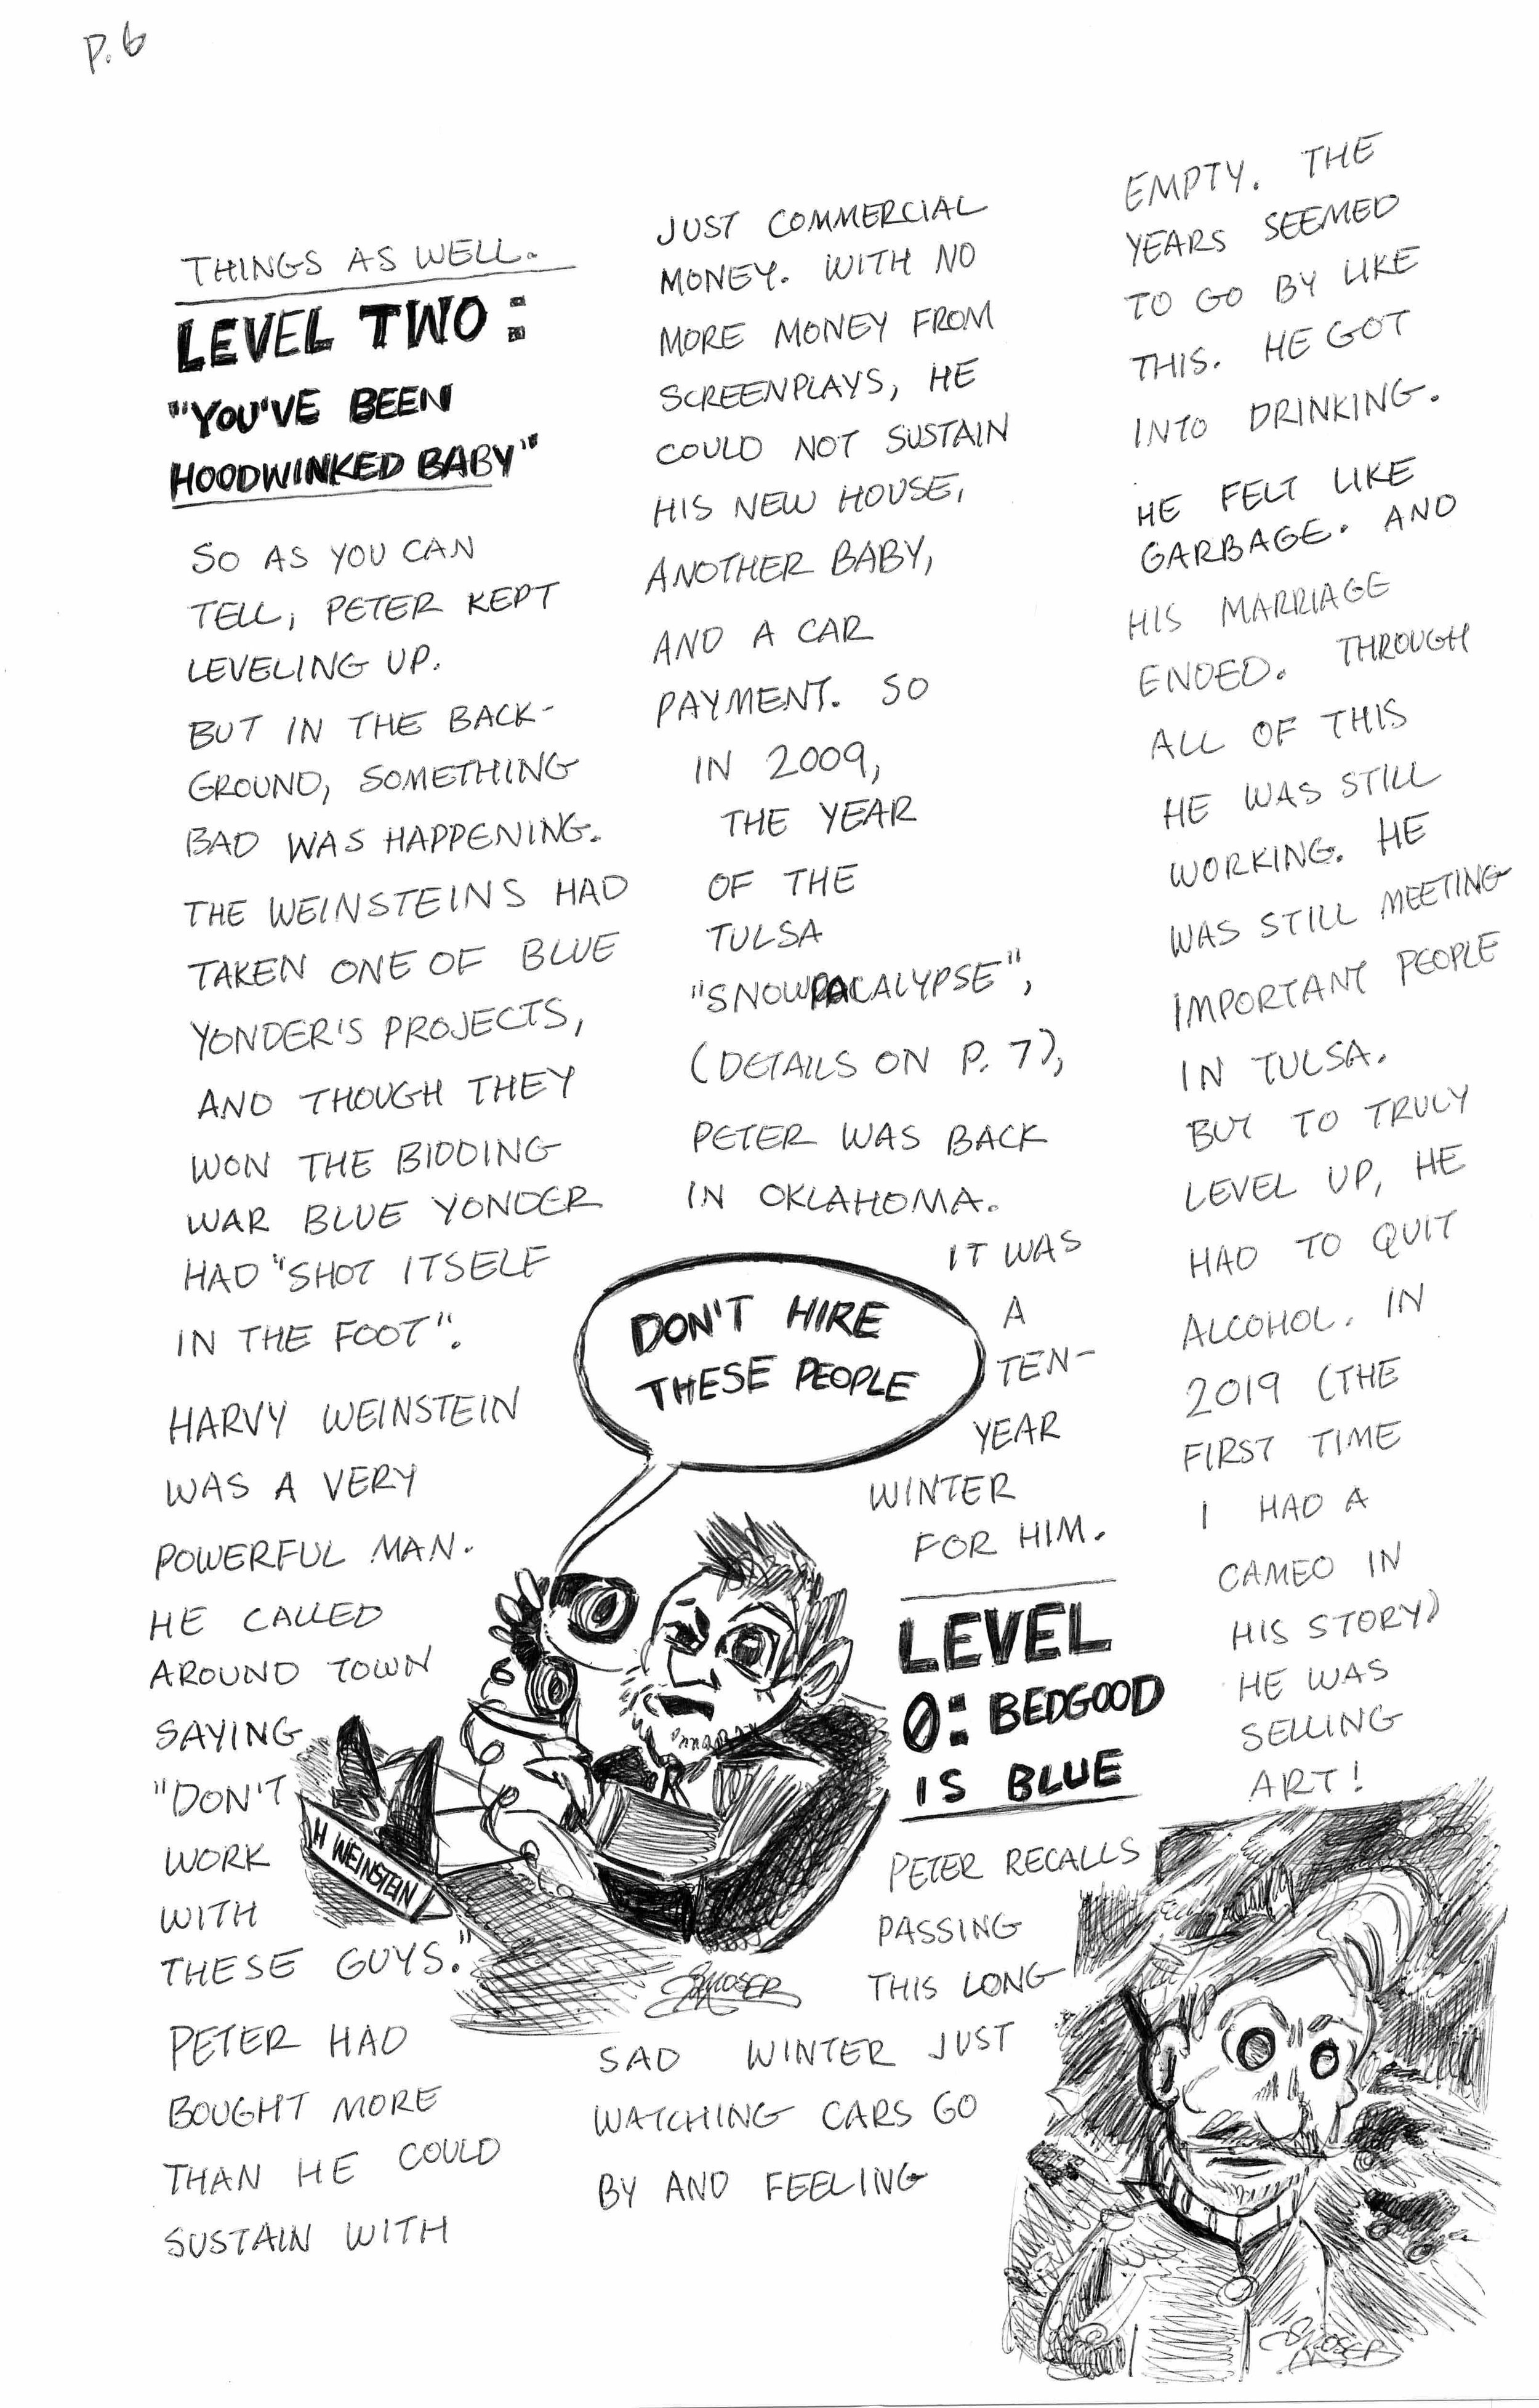 P. 6
THINGS AS WELL.
LEVEL TWO:
"YOU'VE BEEN
HOODWINKED BABY"
SO AS YOU CAN
TELL, PETER KEPT
LEVELING UP.
BUT IN THE BACK-
GROUND, SOMETHING
BAD WAS HAPPENING.
THE WEINSTEINS HAD
TAKEN ONE OF BLUE
YONDER'S PROJECTS,
AND THOUGH THEY
WON THE BIDDING
WAR BLUE YONDER
HAD "SHOT ITSELF
IN THE FOOT".
HARVY WEINSTEIN
WAS A VERY
POWERFUL MAN.
HE CALLED
AROUND TOWN
SAYING
"DON'T
WORK
WITH
THESE GUYS."
PETER HAD
BOUGHT MORE
THAN HE COULD
SUSTAIN WITH
JUST COMMERCIAL
MONEY. WITH NO
MORE MONEY FROM
SCREENPLAYS, HE
COULD NOT SUSTAIN
HIS NEW HOUSE,
ANOTHER BABY,
AND A CAR
PAYMENT. SO
IN 2009,
THE YEAR
OF THE
TULSA
"SNOWPACALYPSE",
(DETAILS ON P. 7),
PETER WAS BACK
IN OKLAHOMA.
IT WAS
A
TEN-
YEAR
WINTER
FOR HIM.
DON'T HIRE
THESE PEOPLE
H WEINSTEIN
SMOSER
LEVEL
0: BEDGOOD
IS BLUE
PETER RECALLS
PASSING
THIS LONG
SAD WINTER JUST
WATCHING CARS GO
BY AND FEELING
EMPTY. THE
YEARS SEEMED
TO GO BY LIKE
THIS. HE GOT
INTO DRINKING.
HE FELT LIKE
GARBAGE. AND
HIS MARRIAGE
ENDED. THROUGH
ALL OF THIS
HE WAS STILL
WORKING. HE
WAS STILL MEETING
IMPORTANT PEOPLE
IN TULSA.
BUT TO TRULY
LEVEL UP, HE
HAD TO QUIT
ALCOHOL. IN
2019 (THE
FIRST TIME
I HAD A
CAMEO IN
HIS STORY)
HE WAS
SELLING
ART!
SMOSER